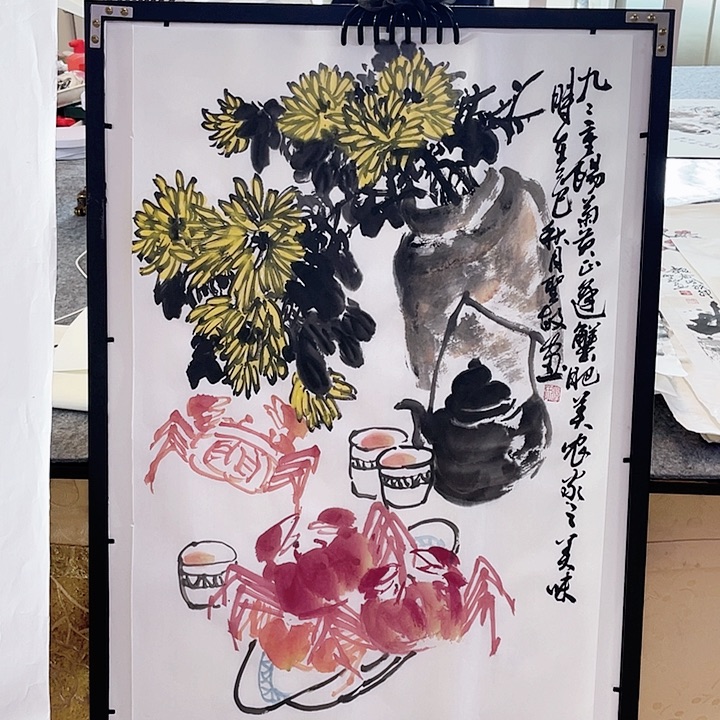 九九重阳菊黄正逢蟹肥美农家之美味
时在乙巳秋月